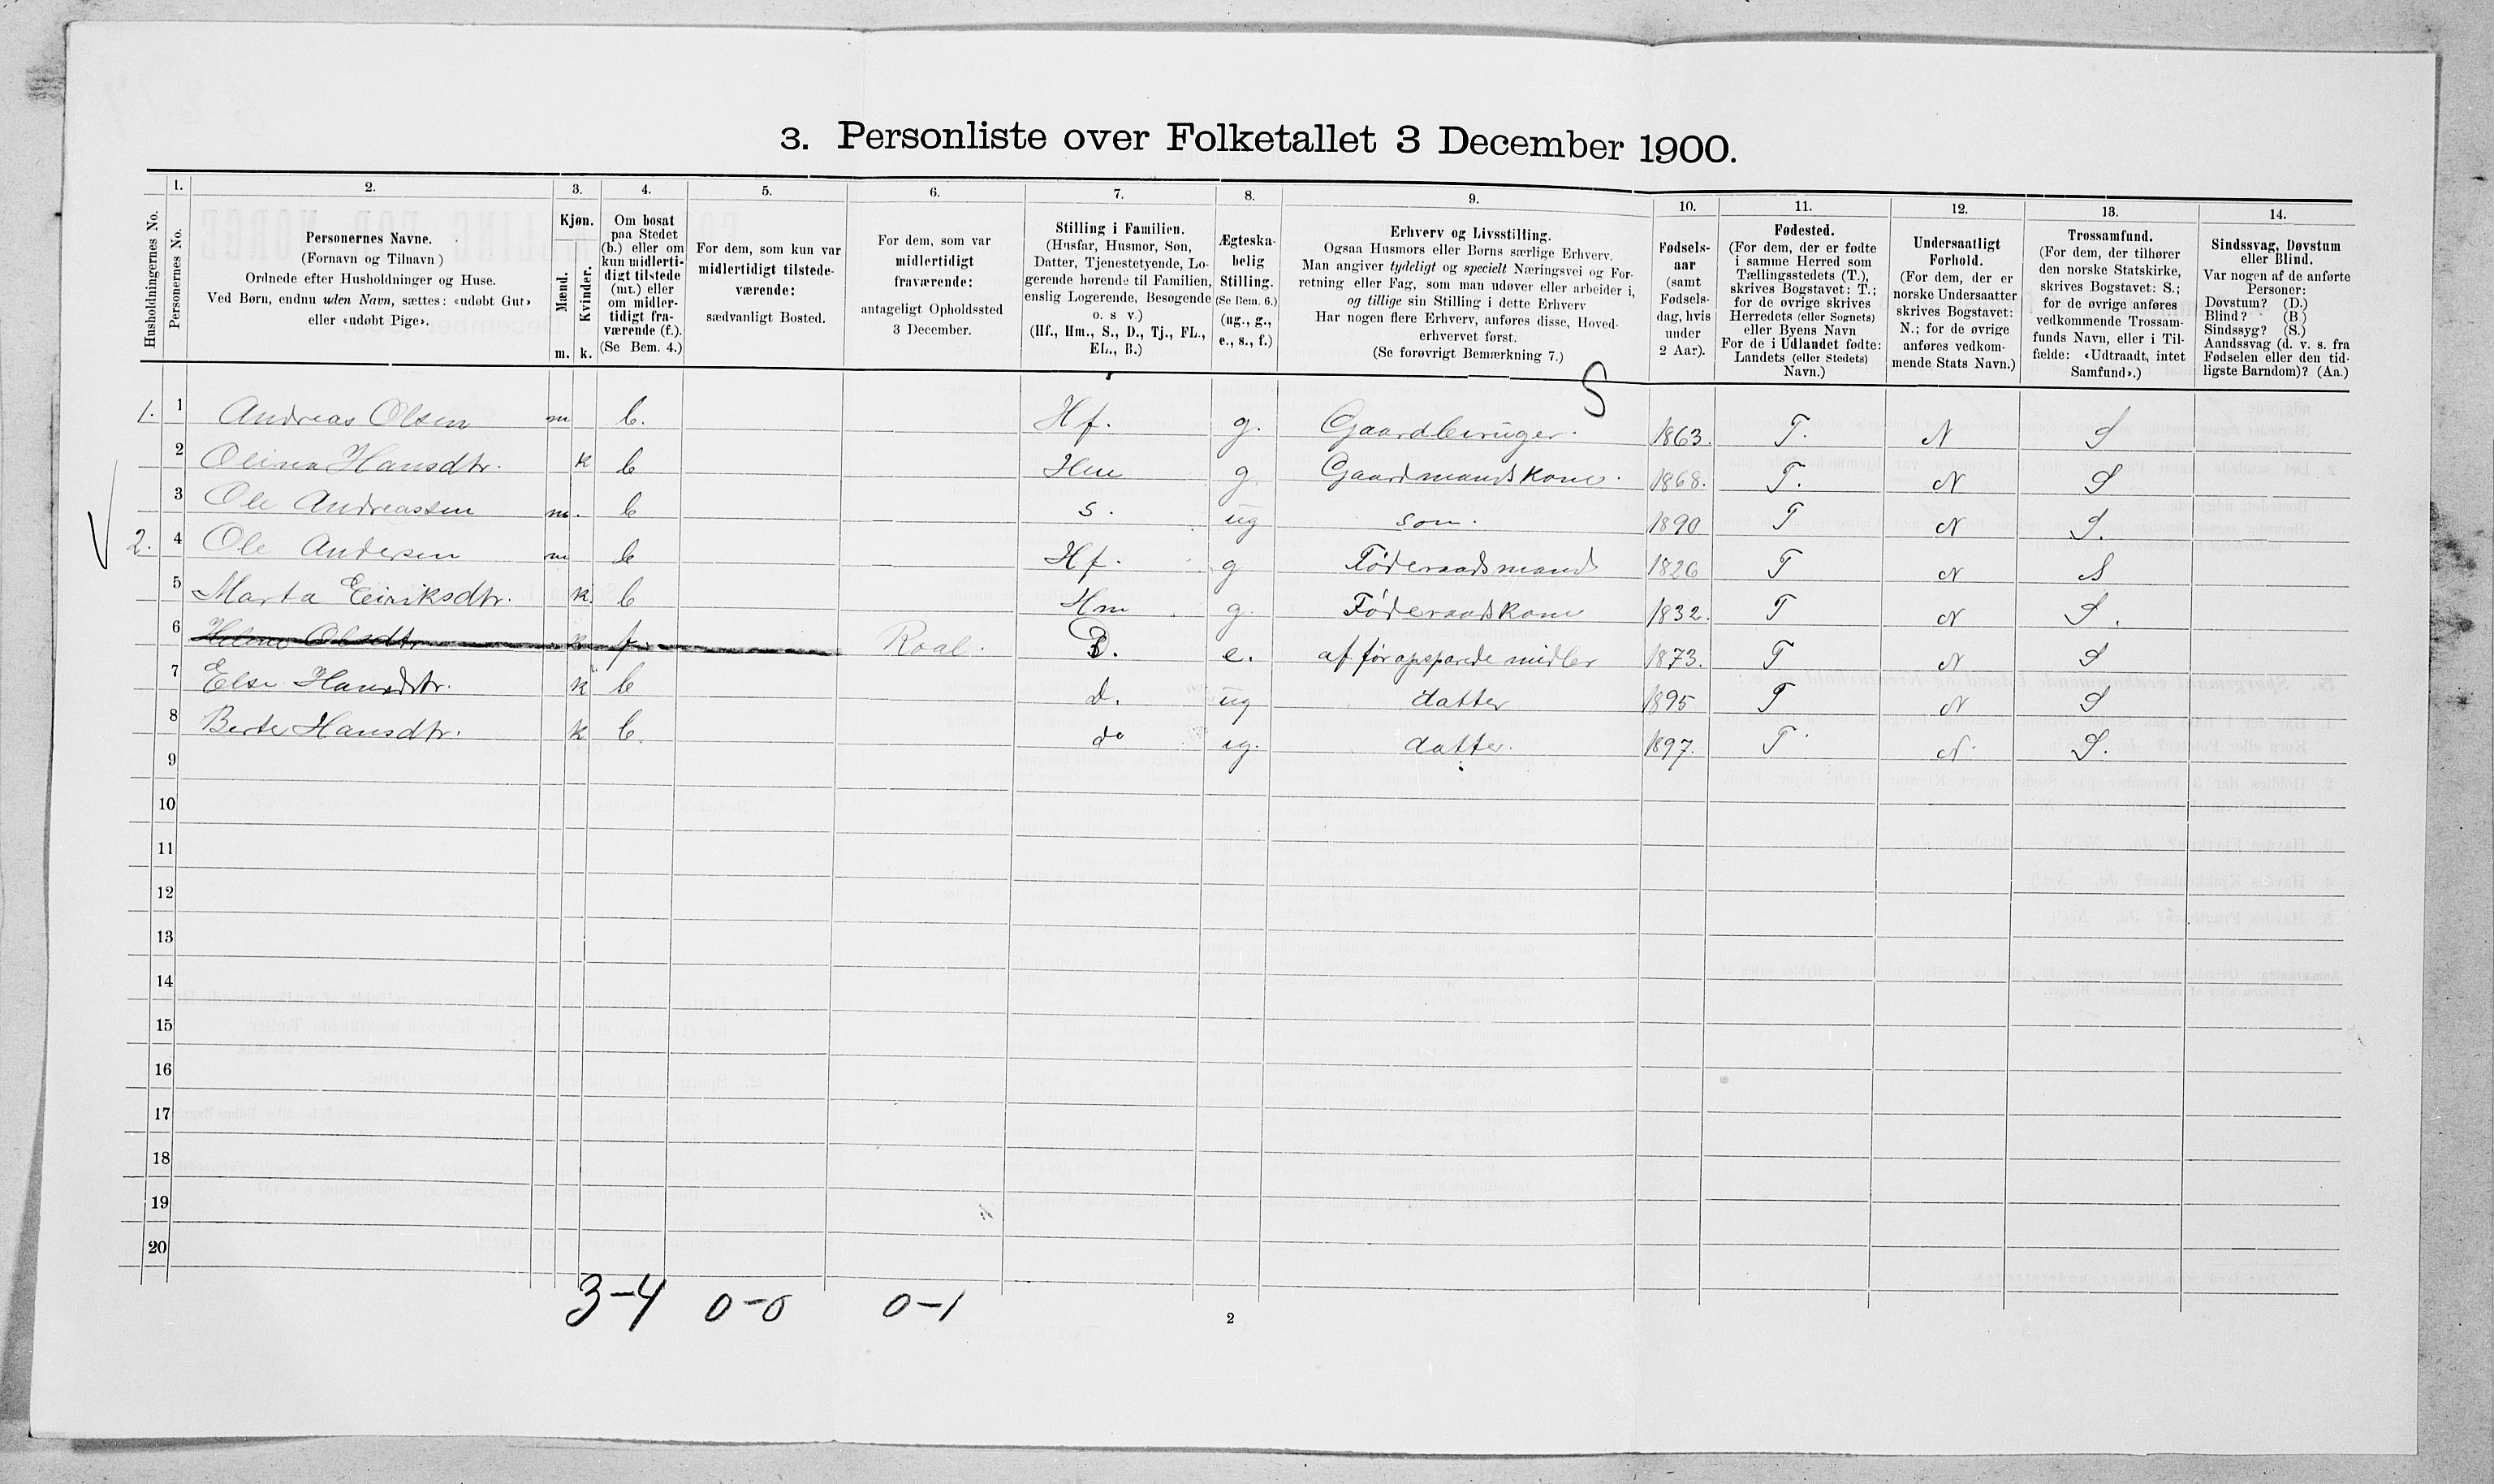 3. Personliste over Folketallet 3 December 1900.
Husholdningernes No.
1.
Personernes No.
2.
Personernes Navne.
(Fornavn og Tilnavn)
Ordnede efter Husholdninger og Huse.
Ved Børn, endnu uden Navn, sættes: «udøbt Gut»
eller «udøbt Pige».
3.
Kjøn.
Mænd.
Kvinder.
m. k.
4.
Om bosat
paa Stedet
(b.) eller om
kun midlerti-
digt tilstede
(mt.) eller
om midler-
tidigt fra-
værende (f.).
(Se Bem. 4.)
5.
For dem, som kun var
midlertidigt tilstede-
værende:
sædvanligt Bosted.
6.
For dem, som var
midlertidigt
fraværende:
antageligt Opholdssted
3 December.
7.
Stilling i Familien.
(Husfar, Husmor, Søn,
Datter, Tjenestetyende, Lo-
gerende hørende til Familien,
enslig Logerende, Besøgende
o. s v.)
(Hf., Hm., S., D., Tj., FL.,
EL., B.)
8.
Ægteska-
belig
Stilling.
(Se Bem. 6.)
(ug., g.,
e., s., f.)
9.
Erhverv og Livsstilling.
Ogsaa Husmors eller Børns særlige Erhverv.
Man angiver tydeligt og specielt Næringsvei og For-
retning eller Fag, som man udøver eller arbeider i,
og tillige sin Stilling i dette Erhverv
Har nogen flere Erhverv, anføres disse, Hoved-
erhvervet først.
(Se forøvrigt Bemærkning 7.)
S
10.
Fødsels-
aar
(samt
Fødsels-
dag, hvis
under
2 Aar).
11.
Fødested.
(For dem, der er fødte
i samme Herred som
Tællingsstedets (T.),
skrives Bogstavet: T.;
for de øvrige skrives
Herredets (eller Sognets)
eller Byens Navn
For de i Udlandet fødte:
Landets (eller Stedets)
Navn.)
12.
Undersaatligt
Forhold.
(For dem, der er
norske Undersaatter
skrives Bogstavet:
N.; for de øvrige
anføres vedkom-
mende Stats Navn.)
13.
Trossamfund.
(For dem, der tilhører
den norske Statskirke,
skrives Bogstavet: S.;
for de øvrige anføres
vedkommende Trossam-
funds Navn, eller i Til-
fælde: «Udtraadt, intet
Samfund».)
14.
Sindssvag, Døvstum
eller Blind.
Var nogen af de anførte
Personer:
Døvstum? (D.)
Blind? (B.)
Sindssyg? (S.)
Aandssvag (d. v. s. fra
Fødselen eller den tid-
ligste Barndom)? (Aa.)
1. 1 Andreas Olsen m b. Hf. g. Gaardbruger. 1863. T. N S
2 Olina Hansdtr. k b Hm g Gaardmandskone. 1868. T. N S
3 Ole Andreassen m. b s. ug søn. 1890 T N S.
2. 4 Ole Andersen m b Hf. g Føderaadsmand 1826 T N S
5 Marta Eiriksdtr. k. b Hm g. Føderaadskone 1832. T N S.
6 Helene Olsdtr. k f. Roal. D. e. af før opsparede midler 1873. T N S
7 Else Hansdtr. k b d. ug datter 1895 T N S
8 Berte Hansdtr. k b. do ug. datter. 1897. T N. S.
9
10
11
12
13
14
15
16
17
18
19
20
3-4 0-0 0-1
2